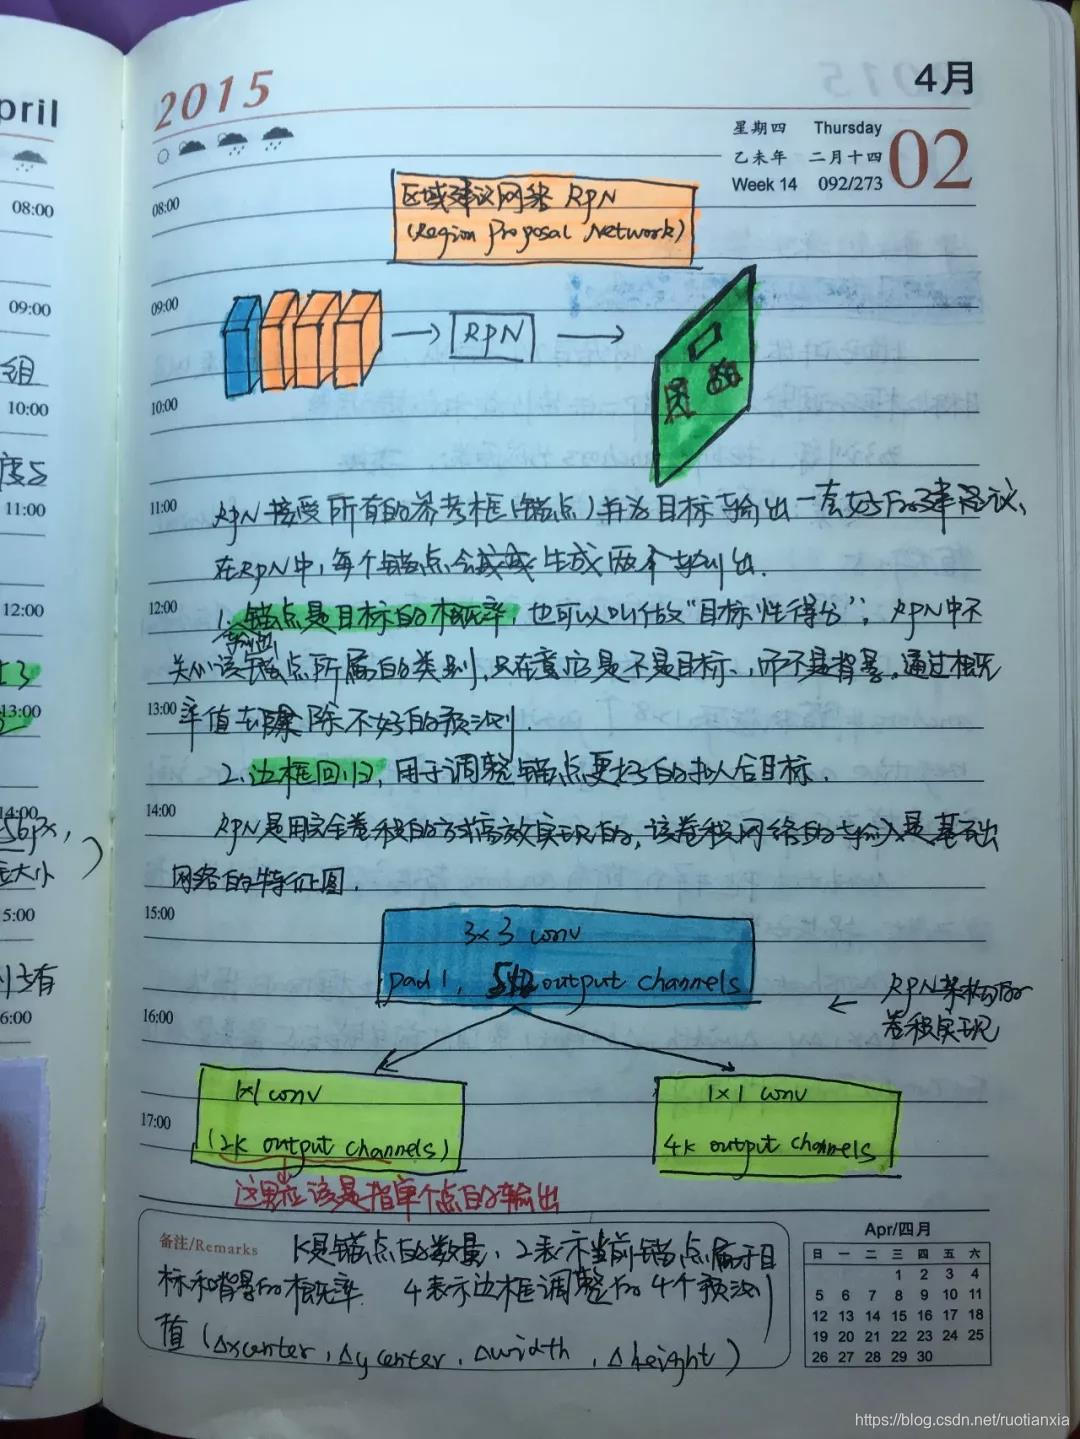 pril
2015
4月
星期四 Thursday
乙未年 二月十四
02
Week 14 092/273
08:00
08:00
区域建议网络 RPN
(Region Proposal Network)
09:00
09:00
RPN
组
10:00
10:00
度5
11:00
11:00
RPN接受所有的参考框(锚点)并为目标输出一套好的建议、
在RPN中,每个锚点会 生成两个输出.
12:00
12:00
1. 锚点是目标的概率, 也可以叫做“目标性得分”, RPN中不
输出
关心该锚点所属的类别,只在意它是不是目标,而不是背景,通过概
13:00
13:00
率值去 除不好的预测.
2.边框回归,用于调整锚点更好的拟合目标.
14:00
14:00
56px,
RPN是用完全卷积的方式高效实现的,该卷积网络的输入是基础
大小
网络的特征图.
5:00
15:00
3×3 conv
pad 1, 512 output channels
有
6:00
16:00
← RPN架构的
卷积实现
1×1 conv
(2K output channels)
1×1 conv
4K output channels
17:00
这里应该是指单个点的输出
备注/Remarks
K是锚点的数量, 2表示当前锚点属于目
标和背景的概率. 4表示边框调整的4个预测
值(Δxcenter, Δycenter, Δwidth, Δheight)
Apr/四月
日 一 二 三 四 五 六
1 2 3 4
5 6 7 8 9 10 11
12 13 14 15 16 17 18
19 20 21 22 23 24 25
26 27 28 29 30
https://blog.csdn.net/ruotianxia